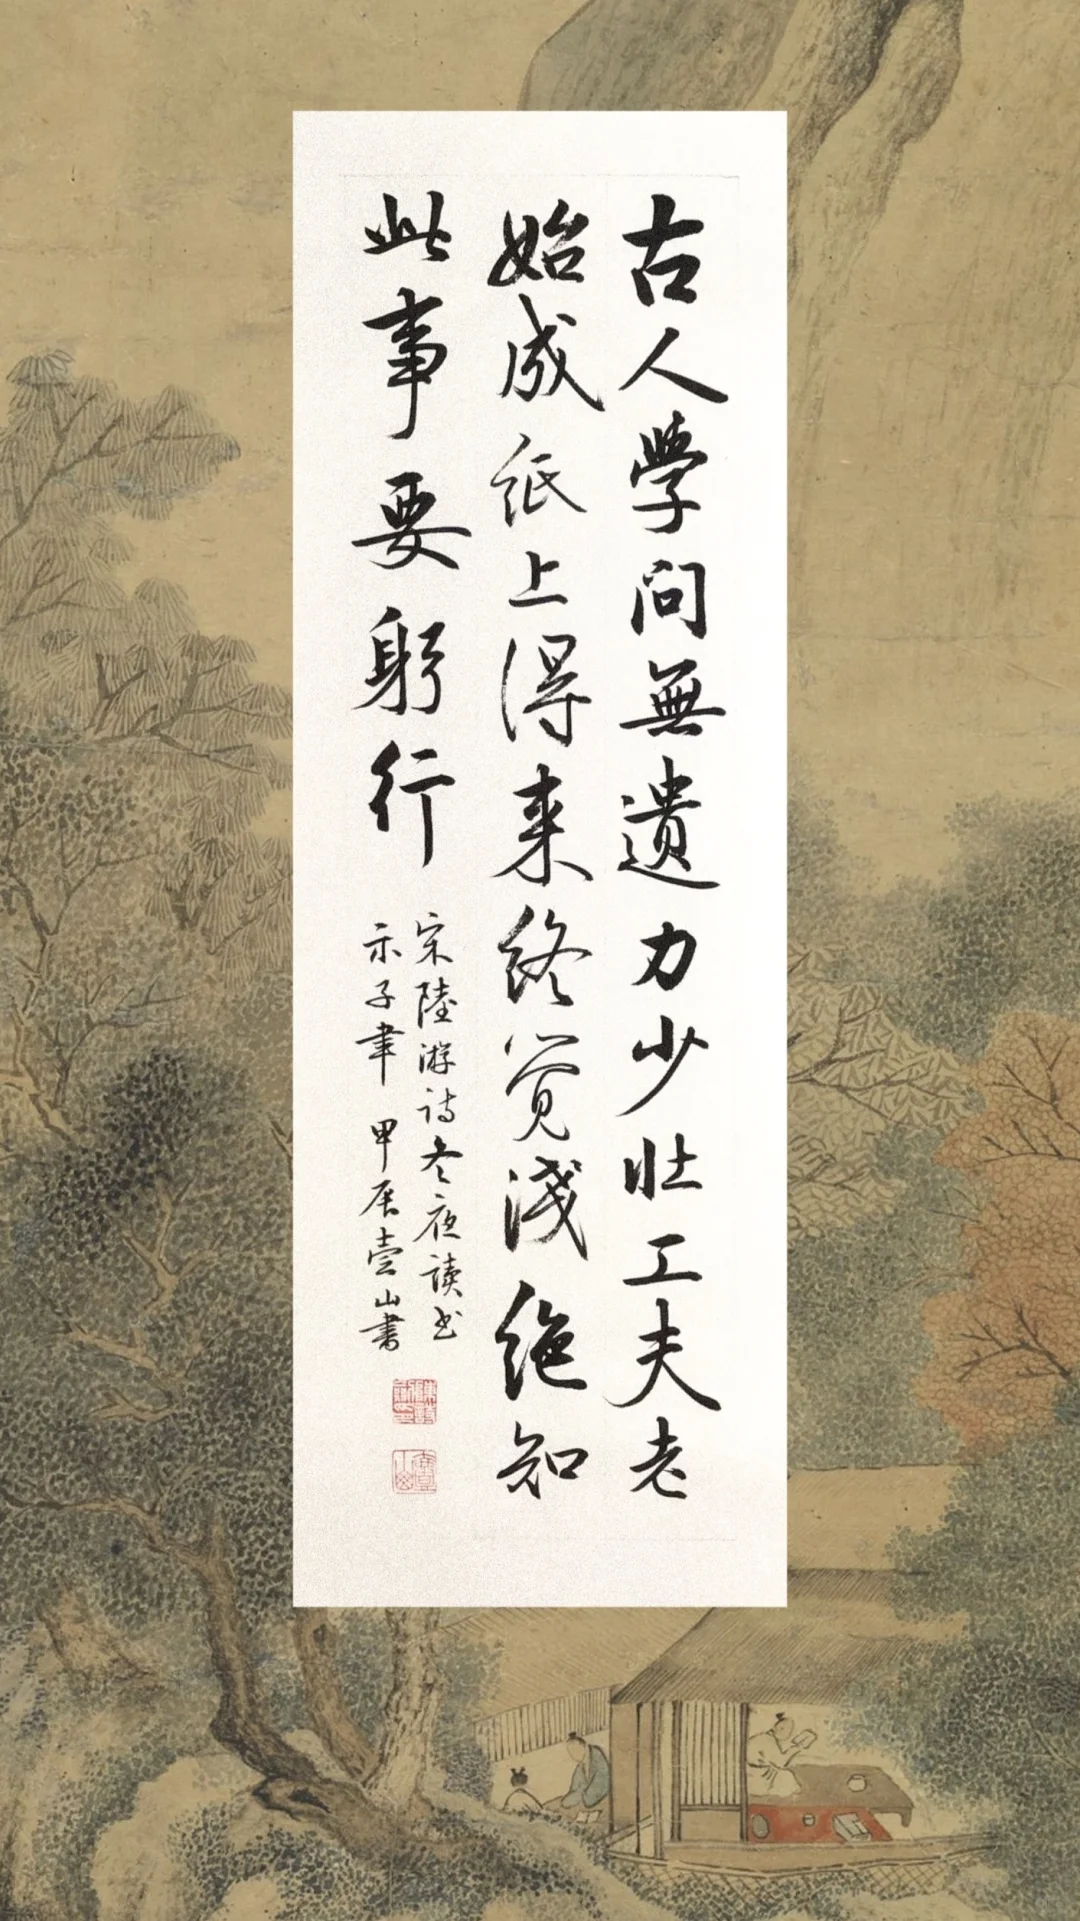 古人學问無遺力少壯工夫老
始成紙上得来终覺淺绝知
此事要躬行
宋陸游诗冬夜讀书
示子聿 甲辰壹山書